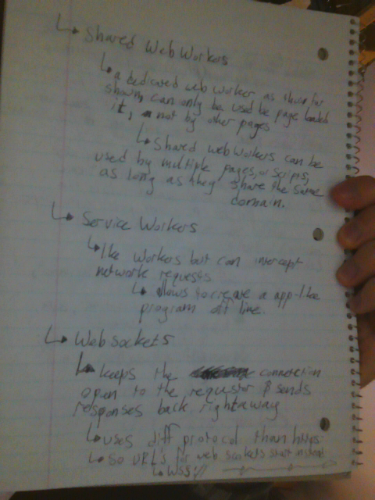 ↳ Shared Web Workers
↳ a dedicated web worker, as thus far
shown, can only be used be page loaded
it, not by other pages
↳ Shared web workers can be
used by multiple pages, or scripts,
as long as they share the same
domain.
↳ Service Workers
↳ like workers but can intercept
network requests
↳ allows to create a app-like
program off line.
↳ Web Sockets
↳ keeps the connection
open to the requestor & sends
responses back right away
↳ uses diff protocol than https
↳ so URL's for web sockets start instead
↳ wss://